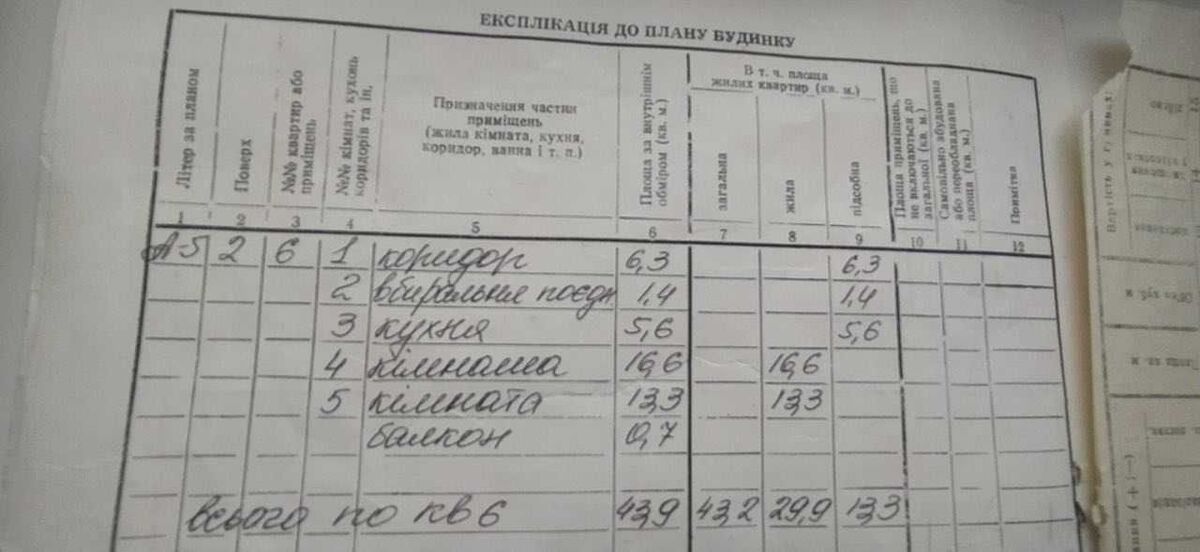 ЕКСПЛІКАЦІЯ ДО ПЛАНУ БУДИНКУ
Літер за планом
Поверх
№№ квартир або
приміщень
№№ кімнат, кухонь
коридорів та ін.
Призначення частин
приміщень
(жила кімната, кухня,
коридор, ванна і т. п.)
Площа за внутрішнім
обміром (кв. м.)
В т. ч. площа
жилих квартир (кв. м.)
загальна
жила
підсобна
Площа приміщень, що
не включаються до
загальної (кв. м.)
Самовільно збудована
або переобладнана
площа (кв. м.)
Примітка
1 2 3 4 5 6 7 8 9 10 11 12
А-5 2 6 1 коридор 6,3 6,3
2 вбиральня поєдн 1,4 1,4
3 кухня 5,6 5,6
4 кімната 16,6 16,6
5 кімната 13,3 13,3
балкон 0,7
всього по кв 6 43,9 43,2 29,9 13,3